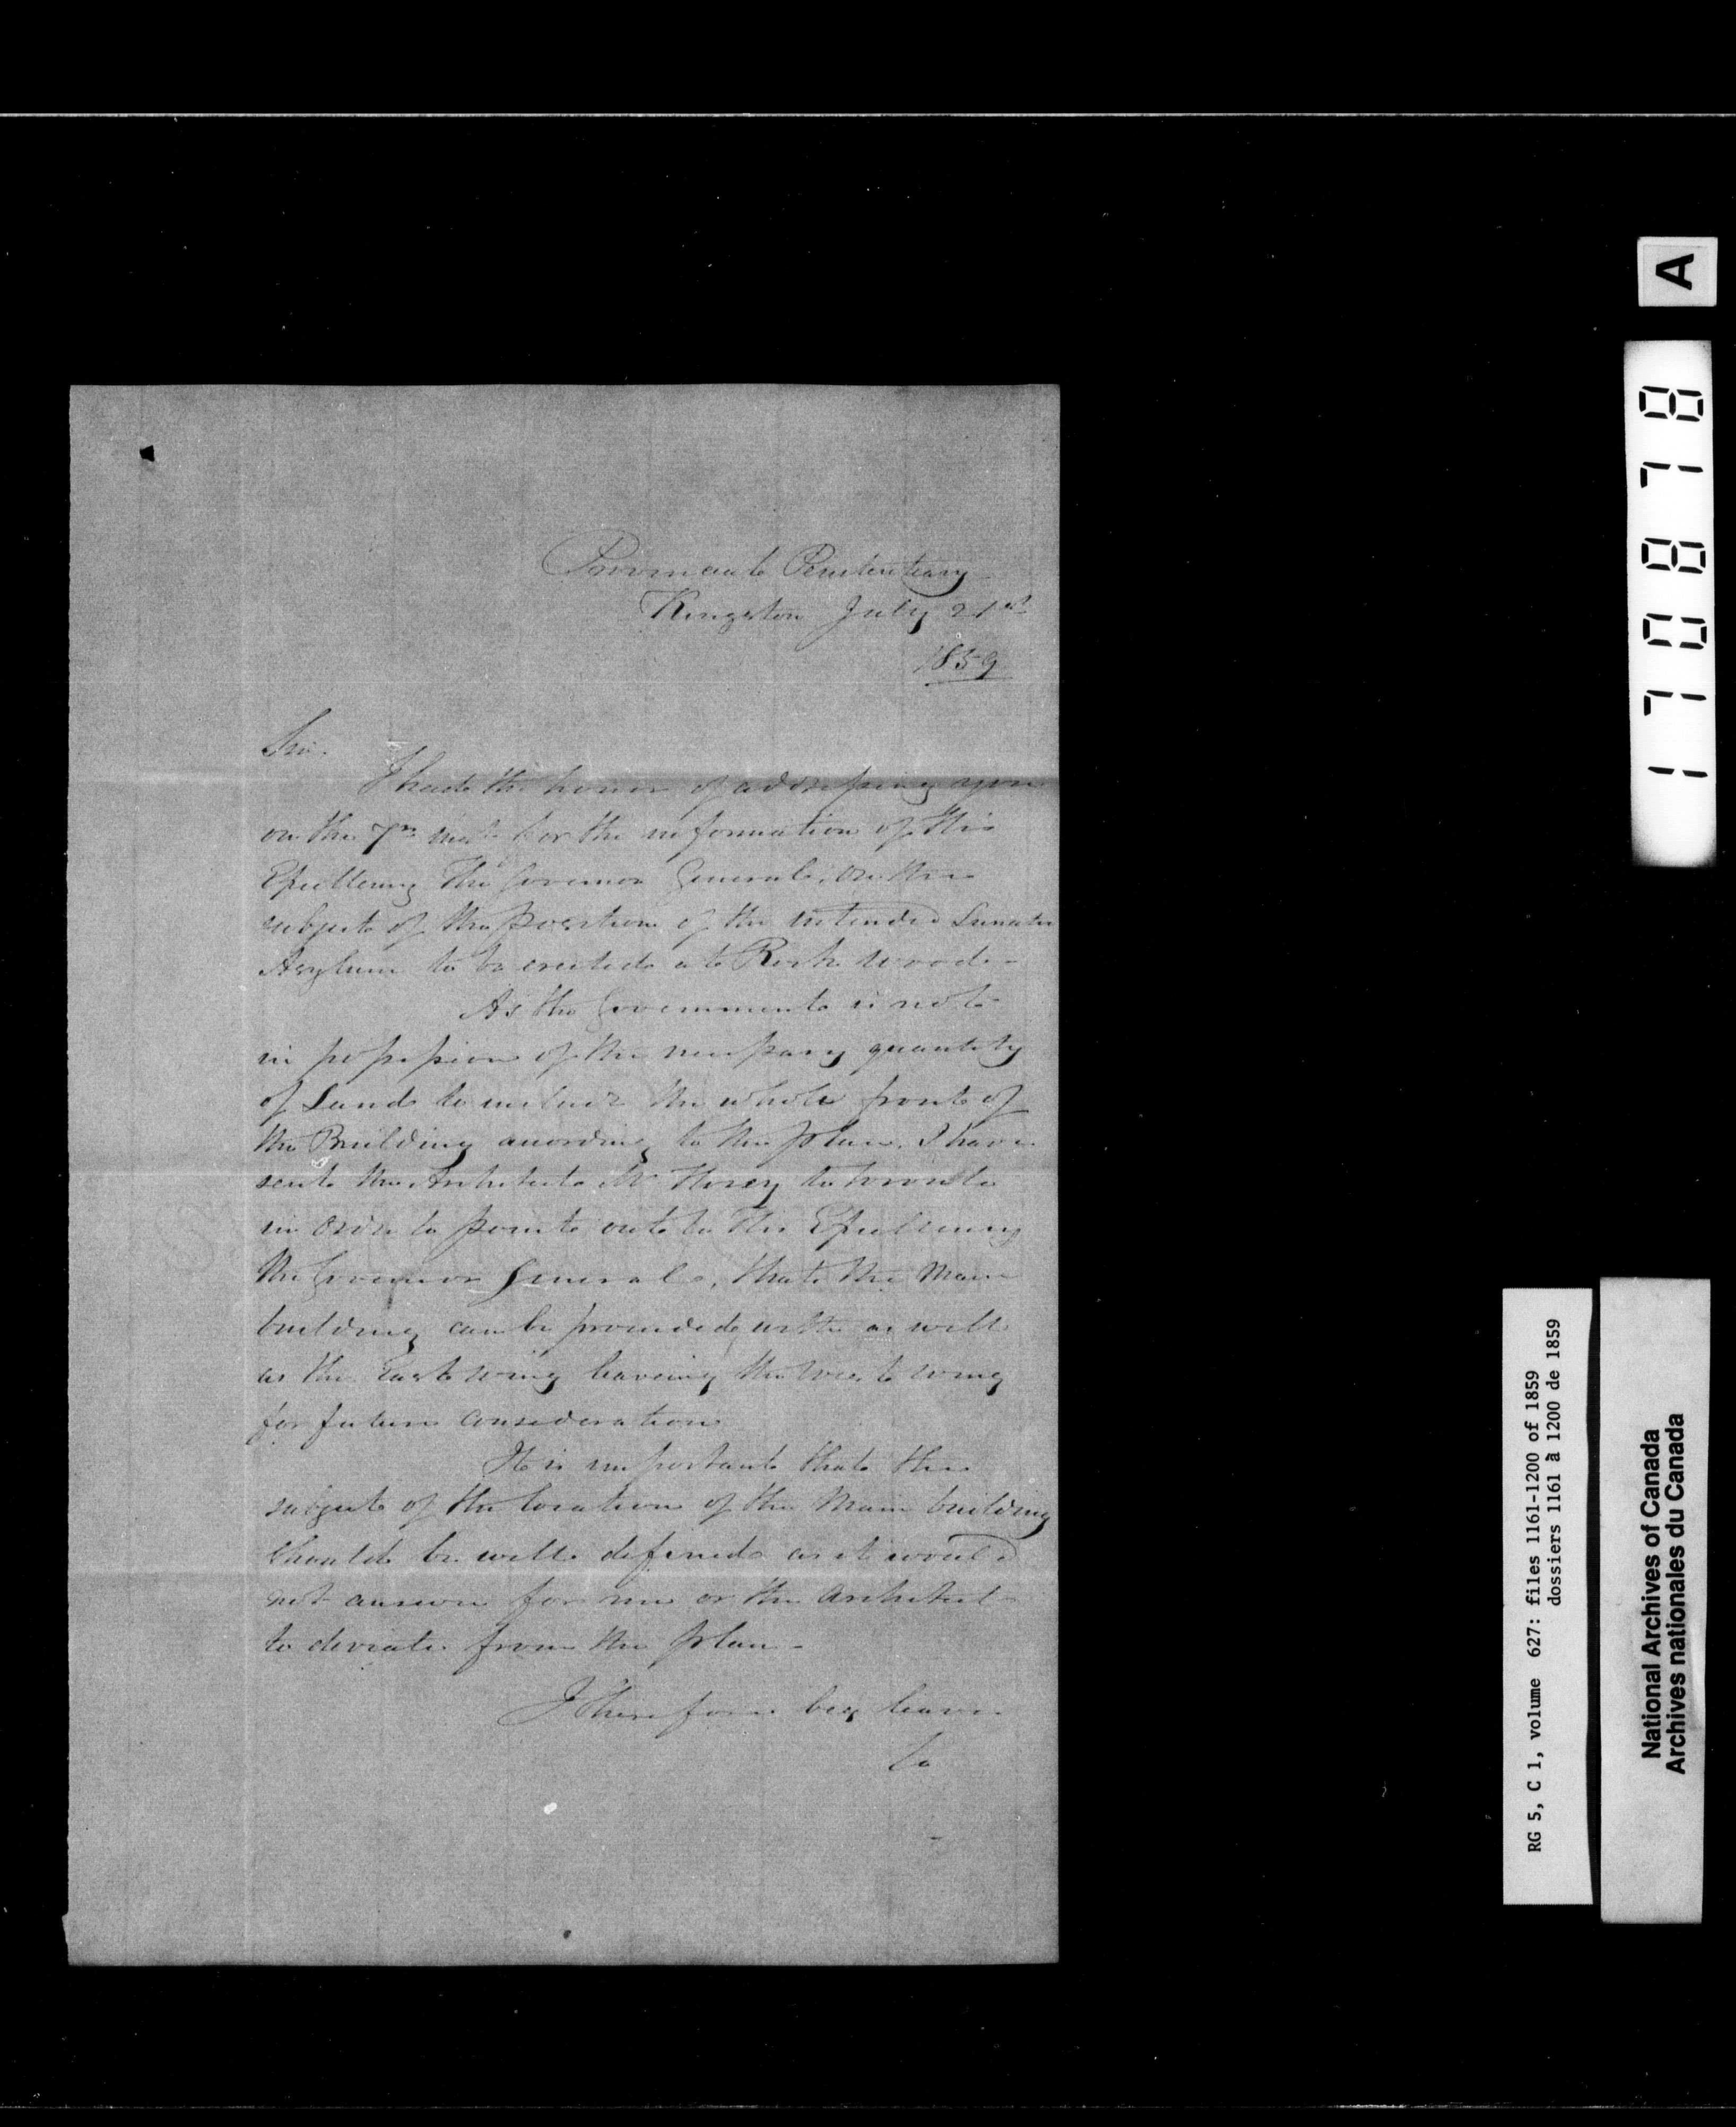 Provincial Penitentiary
Kingston July 21st
1859
Sir.
I had the honor of addressing you
on the 7th inst for the information of His
Excellency The Governor General, on the
subject of the position of the intended Lunatic
Asylum to be erected at Rock wood -
As the Government is not
in possession of the necessary quantity
of Land to include the whole front of
the Building according to the plan, I have
sent the Architect Mr Horsey to Toronto
in order to point out to His Excellency
the Governor General, that the Main
building can be proceeded with as well
as the East wing leaving the West wing
for future consideration
It is important that the
subject of the location of the Main building
should be well defined as it would
not answer for me or the Architect
to deviate from the plan -
I therefore beg leave
to
A
1708718
RG 5, C 1, volume 627: files 1161-1200 of 1859
dossiers 1161 à 1200 de 1859
National Archives of Canada
Archives nationales du Canada